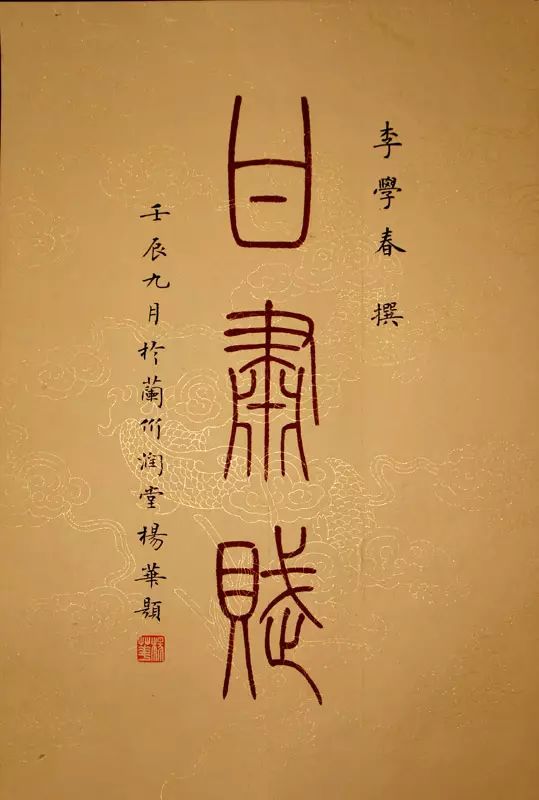 李學春 撰
甘肅賦
壬辰九月於蘭竹潤堂楊華題
楊華